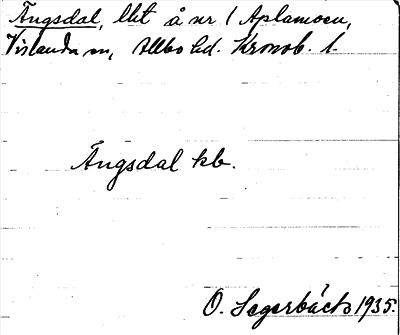 Ängsdal, lht å nr 1 Aplamoen,
Vislanda sn, Allbo hd. Kronob. l.
Ängsdal kb.
O. Segerbäck 1935.